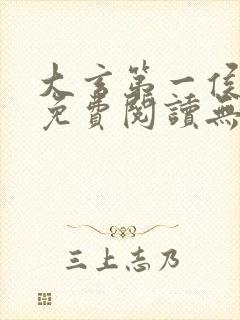 大玄第一侯
免費閱讀無
三上志乃